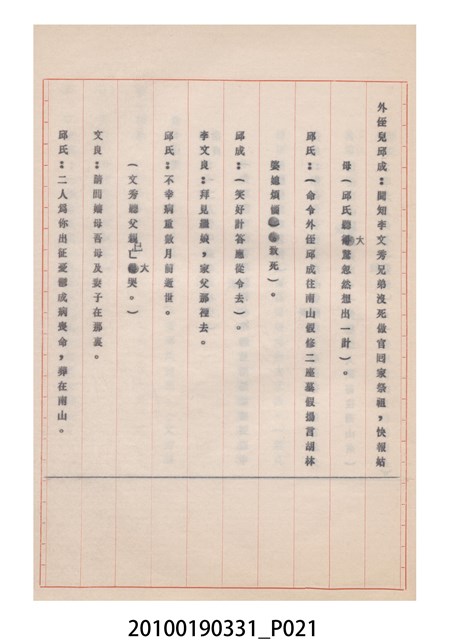 外侄兒邱成：聞知李文秀兄弟沒死做官回家祭祖，快報姑
母（邱氏聽大驚忽然想出一計）。
邱氏：（命令外侄邱成往南山假修二座墓假揚言胡林
婆媳煩死）。
邱成：（笑好計答應從令去）。
李文良：拜見繼娘，家父那裡去。
邱氏：不幸病重數月前逝世。
（文秀聽父親已亡大哭。）
文良：請問嬸母吾母及妻子在那裏。
邱氏：二人為你出征憂鬱成病喪命，葬在南山。
20100190331_P021